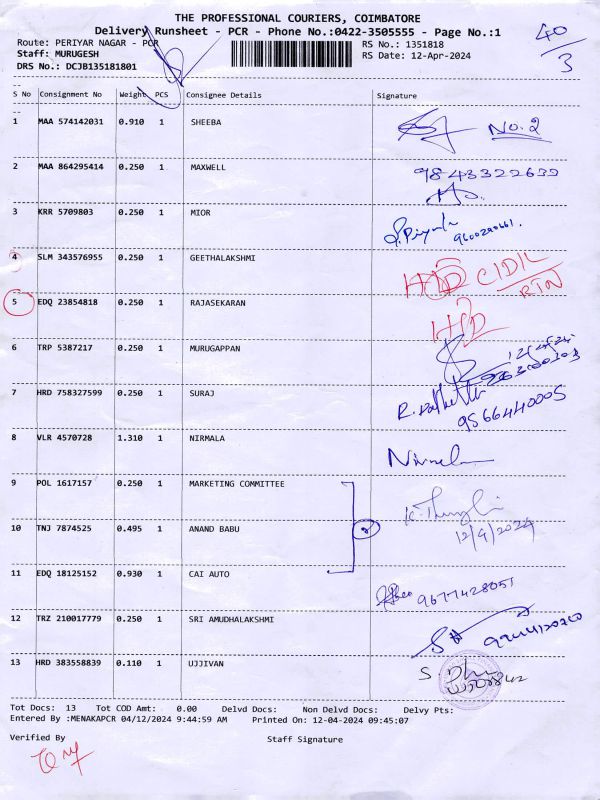 THE PROFESSIONAL COURIERS, COIMBATORE
Delivery Runsheet - PCR - Phone No.:0422-3505555 - Page No.:1
Route: PERIYAR NAGAR - PCR RS No.: 1351818
Staff: MURUGESH RS Date: 12-Apr-2024
DRS No.: DCJB135181801
40/3
S No Consignment No Weight PCS Consignee Details Signature
1 MAA 574142031 0.910 1 SHEEBA No. 2
2 MAA 864295414 0.250 1 MAXWELL
3 KRR 5709803 0.250 1 MIOR
4 SLM 343576955 0.250 1 GEETHALAKSHMI
5 EDQ 23854818 0.250 1 RAJASEKARAN
6 TRP 5387217 0.250 1 MURUGAPPAN 12/4/24
7 HRD 758327599 0.250 1 SURAJ 9566440005
8 VLR 4570728 1.310 1 NIRMALA
9 POL 1617157 0.250 1 MARKETING COMMITTEE
10 TNJ 7874525 0.495 1 ANAND BABU 12/4/2024
11 EDQ 18125152 0.930 1 CAI AUTO 9677428051
12 TRZ 210017779 0.250 1 SRI AMUDHALAKSHMI
13 HRD 383558839 0.110 1 UJJIVAN
Tot Docs: 13 Tot COD Amt: 0.00 Delvd Docs: Non Delvd Docs: Delvy Pts:
Entered By :MENAKAPCR 04/12/2024 9:44:59 AM Printed On: 12-04-2024 09:45:07
Verified By Staff Signature